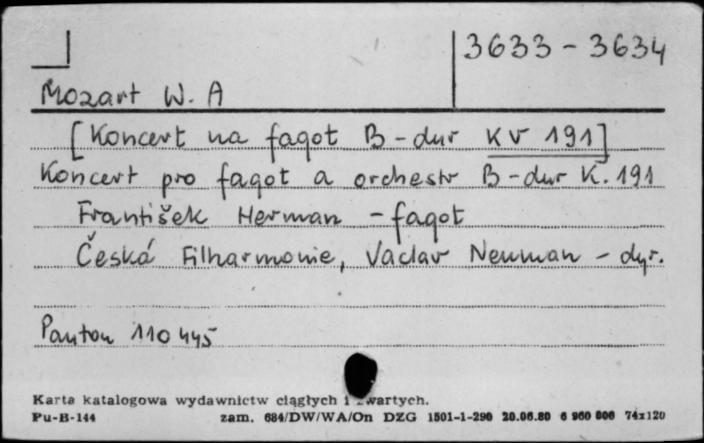 3633 - 3634
Mozart W. A
[Koncert na fagot B-dur KV 191]
Koncert pro fagot a orchestr B-dur K. 191
František Herman - fagot
Česká Filharmonie, Vaclav Neuman - dyr.
Panton 110 445
Karta katalogowa wydawnictw ciągłych i zwartych.
Pu-B-144 zam. 684/DW/WA/On DZG 1501-1-290 20.06.80 6 960 000 74x120